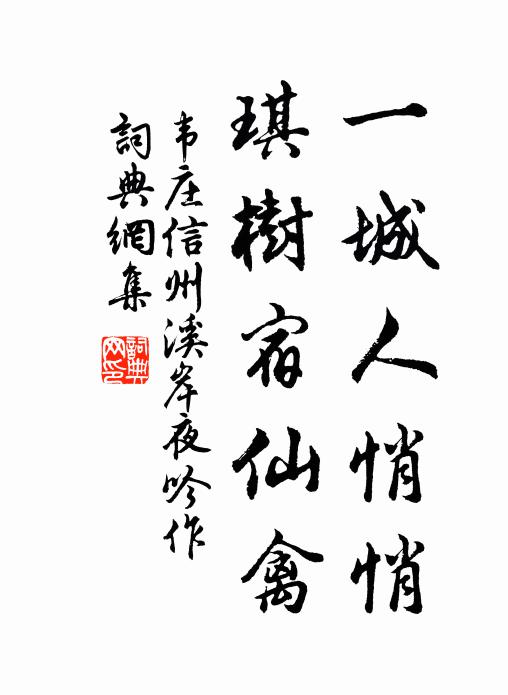 一城人悄悄
琪樹宿仙禽
韦庄信州溪岸夜吟作
詞典網集